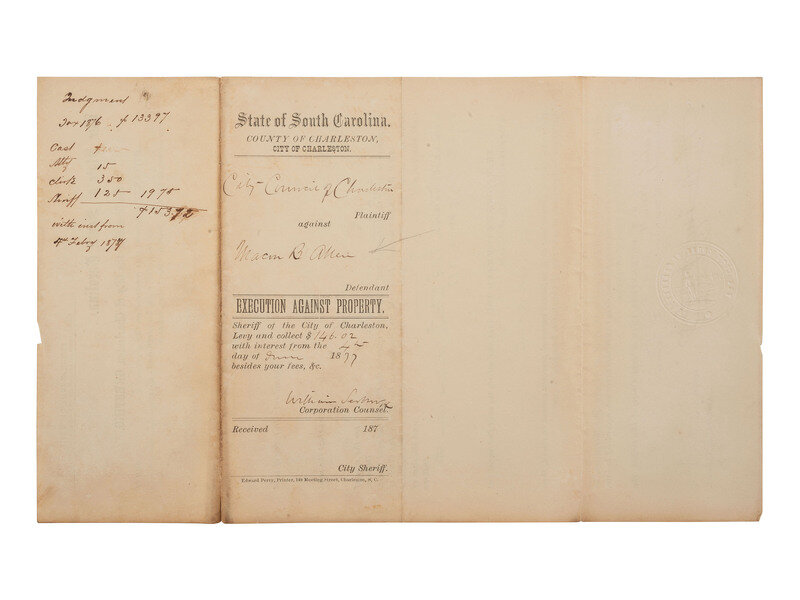 Judgment
For 1876 $ 133 97
Cost
Atty 15
Clerk 3 50
Sheriff 1 25 19 75
$ 153 72
with inst from
4th Feby 1877
State of South Carolina.
COUNTY OF CHARLESTON,
CITY OF CHARLESTON.
City Council of Charleston
Plaintiff
against
Macon B Allen
Defendant
EXECUTION AGAINST PROPERTY.
Sheriff of the City of Charleston,
Levy and collect $ 146.02
with interest from the 4th
day of June 1877
besides your fees, &c.
William
Corporation Counsel.
Received 187
City Sheriff.
Edward Perry, Printer, 149 Meeting Street, Charleston, S. C.